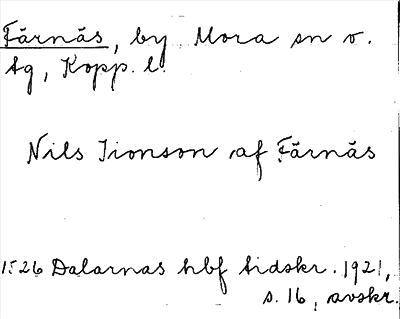 Färnäs, by Mora sn o.
tg, Kopp. l.
Nils Jionson af Färnäs
1526 Dalarnas hbf tidskr. 1921,
s. 16, avskr.